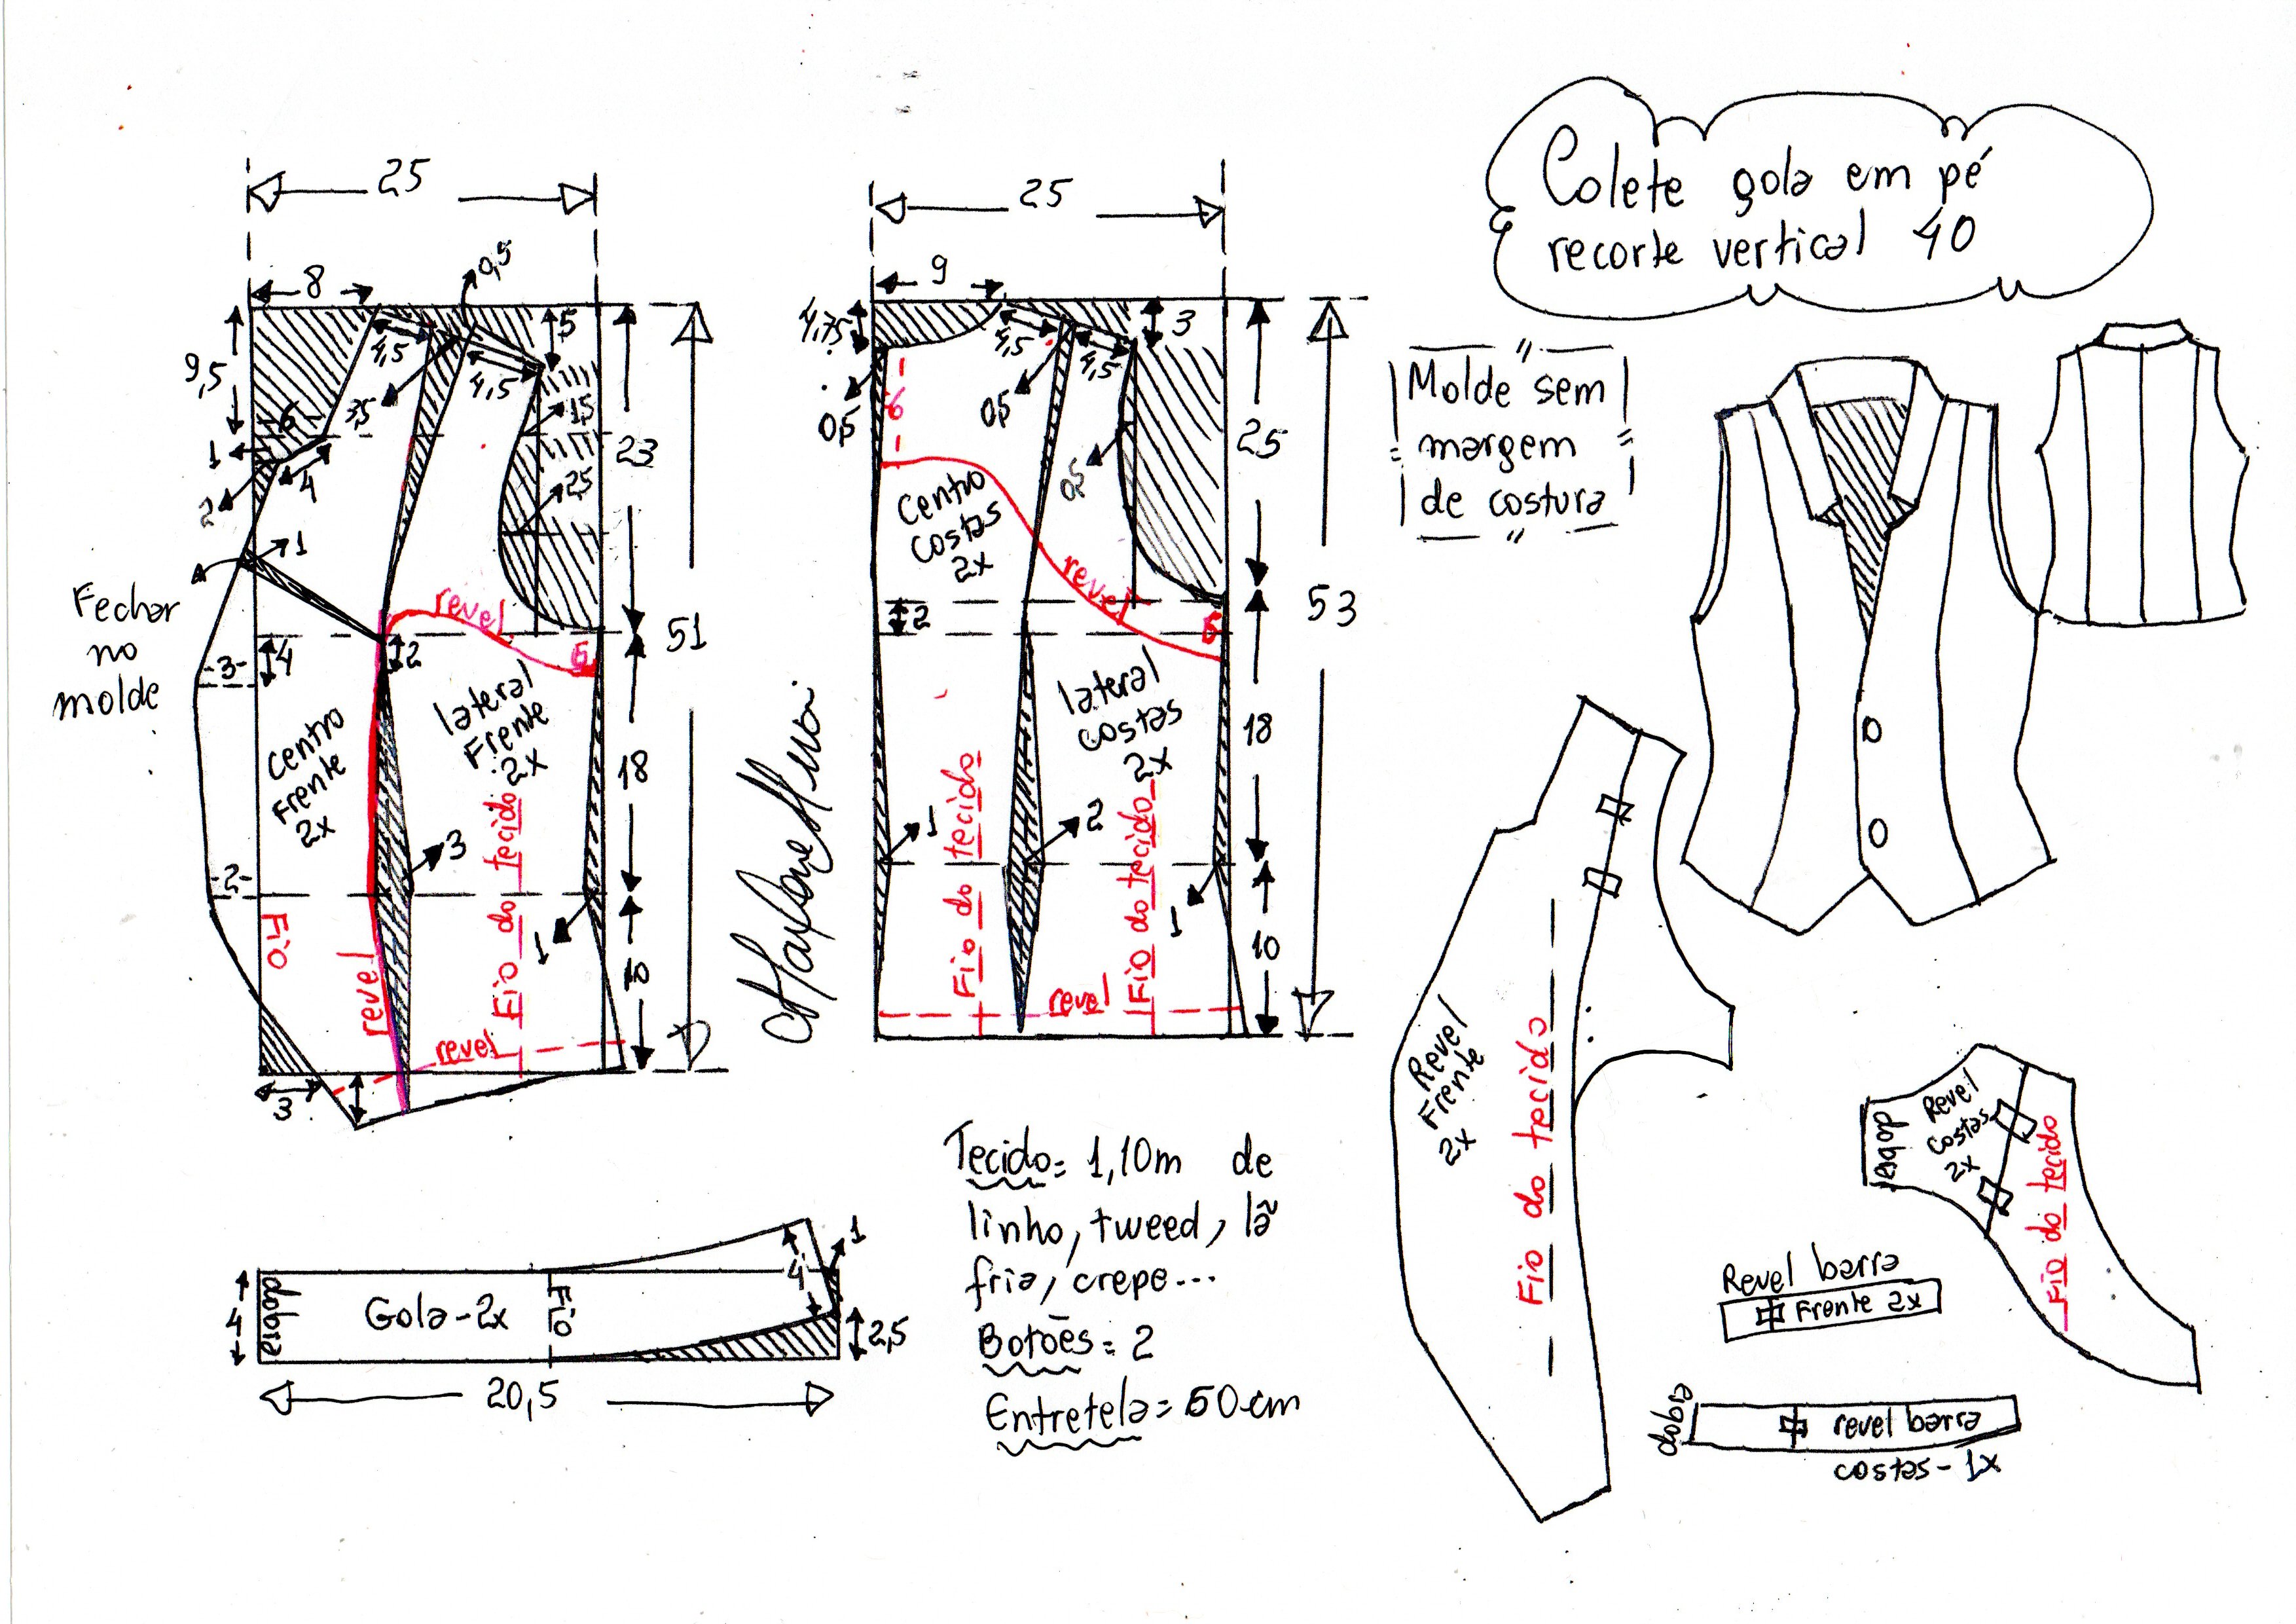 Colete gola em pé
recorte vertical 40
Molde sem
margem
de costura
25
8
0,5
9,5
4,5
5
3,5
4,5
1,5
6
1
4
2
2,5
23
1
Fechar
no
molde
revel
51
3
4
2
6
centro
Frente
2x
lateral
Frente
2x
18
2
3
Fio
revel
Fio do tecido
1
10
revel
3
25
9
4,75
4,5
3
0,5
6
0,5
4,5
25
0,5
centro
costas
2x
revel
53
2
6
lateral
costas
2x
18
1
2
Fio do tecido
Fio do tecido
1
10
revel
dobra
4
Gola - 2x
Fio
4
1
2,5
20,5
Tecido = 1,10m de
linho, tweed, lã
fria, crepe...
Botões = 2
Entretela = 50 cm
Revel
Frente
2x
Fio do tecido
dobra
Revel
costas
2x
Fio do tecido
Revel barra
Frente 2x
dobra
revel barra
costas - 1x